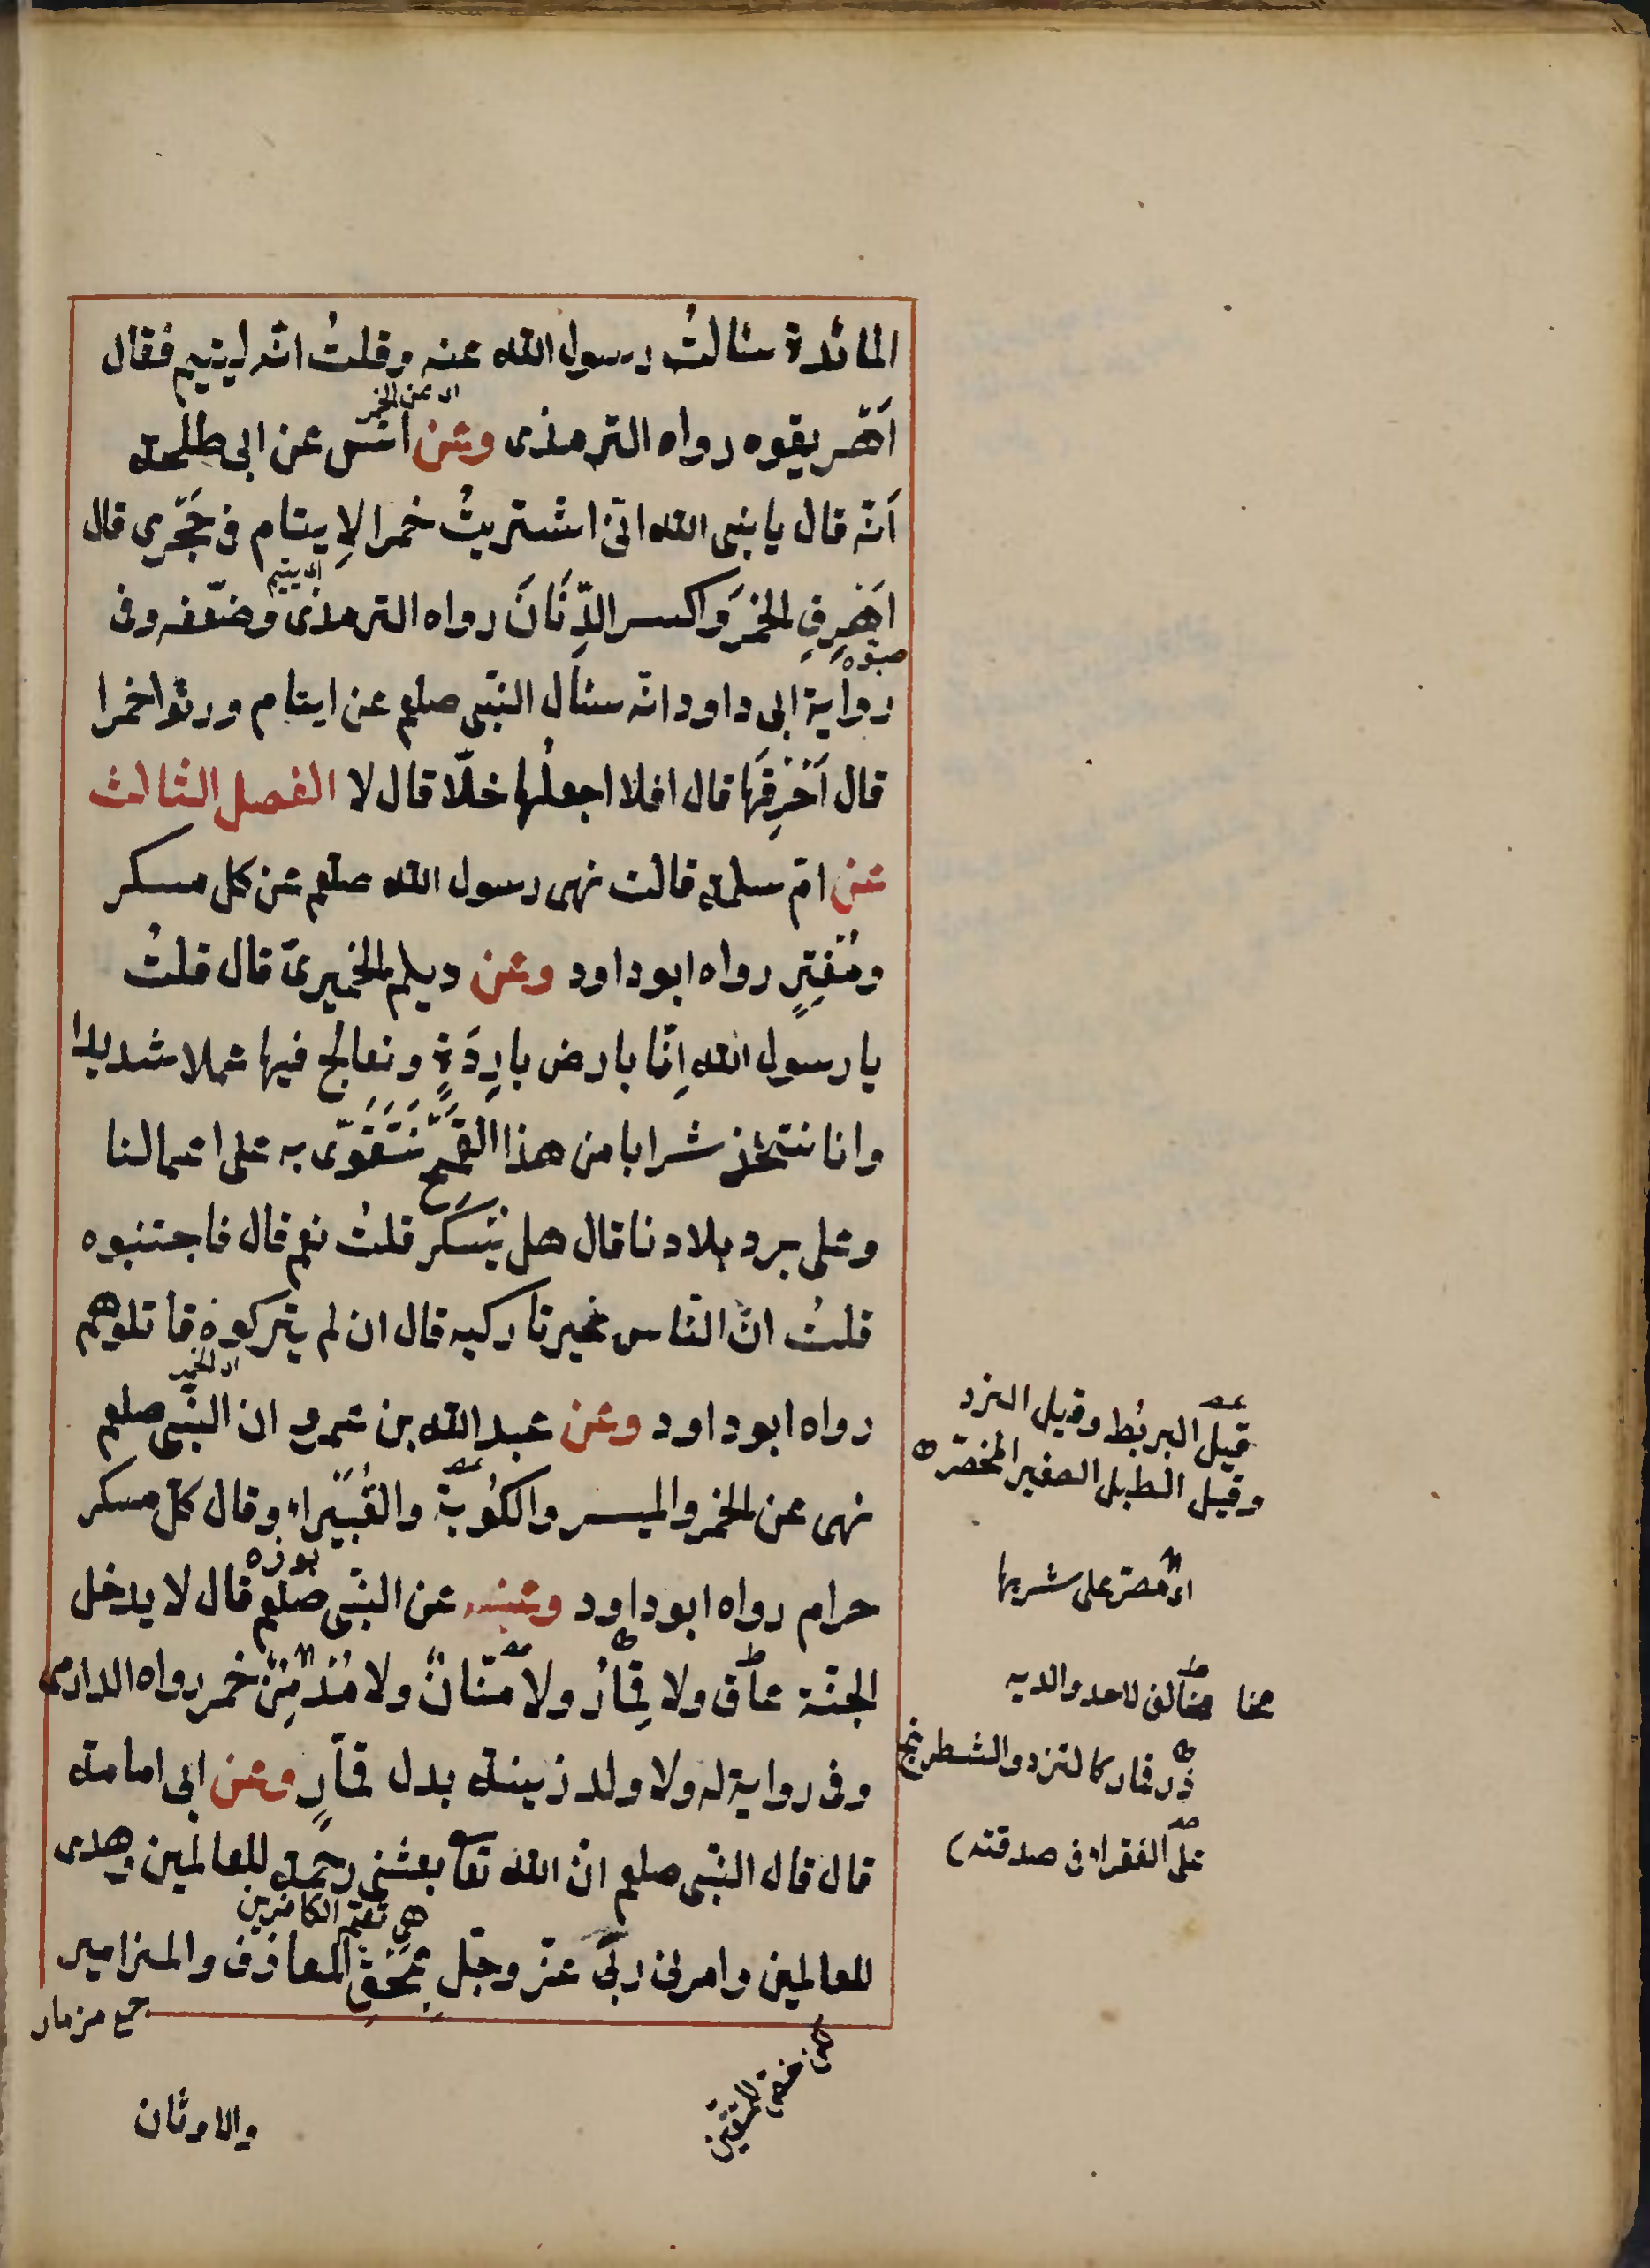 المائدة سئالتُ رسول الله عنه وقلتُ انّه ليتيم فقال
اى عن الخمر
اَهْريقوه رواه الترمذى وعن انس عن ابى طلحة
اَنّه قال يا نبى الله انّى اشتريتُ خمرا لِايتام فى حَجْرى قال
اى يتيم
اَهْرِقِ الخمرَ واكسر الدِّنَانَ رواه الترمذى وضعّفه وفى
صبّوه
رواية ابى داود انّه سئال النّبى صلعم عن ايتام ورثوا خمرا
قال اَهْرِقْهَا قال افلا اجعلُها خلّا قال لا الفصل الثالث
عن امّ سلمة قالت نهى رسول الله صلعم عن كل مسكر
ومُفْتِرٍ رواه ابو داود وعن ديلم الحميرىّ قال قلتُ
يا رسول الله اِنّا بارض بارِدَةٍ ونعالج فيها عملا شديدا
وانا نتّخذ شرابا من هذا القَمْحِ نَتَقَوّى به على اعمالنا
وعلى برد بلادنا قال هل يُسْكر قلتُ نعم قال فاجتنبوه
قلتُ انّ النّاس غير تاركيه قال ان لم يتركوهُ قاتلوهم
رواه ابو داود وعن عبد الله بن عمرو ان النّبى صلعم
نهى عن الخمر والميسر والكُوبة والغُبَيْراء وقال كلّ مسكر
بوزه
حرام رواه ابو داود وعنه عن النّبى صلعم قال لا يدخل
الجنّة عاقّ ولا قمّارٌ ولا منّانٌ ولا مُدْمِنُ خمر رواه الدارمى
وفى رواية له ولا ولد زينة بدل قمّارٍ وعن ابى امامة
قال قال النّبى صلعم انّ الله تعا بعثنى رحمة للعالمين وهدى
هى تعمّ الكافرين
للعالمين وامرنى ربّى عزّ وجلّ بِمَحْقِ المعازف والمزامير
جمع مزمار
والاوثان
قيل البربط وقيل النرد
وقيل الطبل الصغير المخصّر
اى مصرّ على شربها
مخالف لاحد والديه
قمار كالنرد والشطرنج
على الفقراء فى صدقته